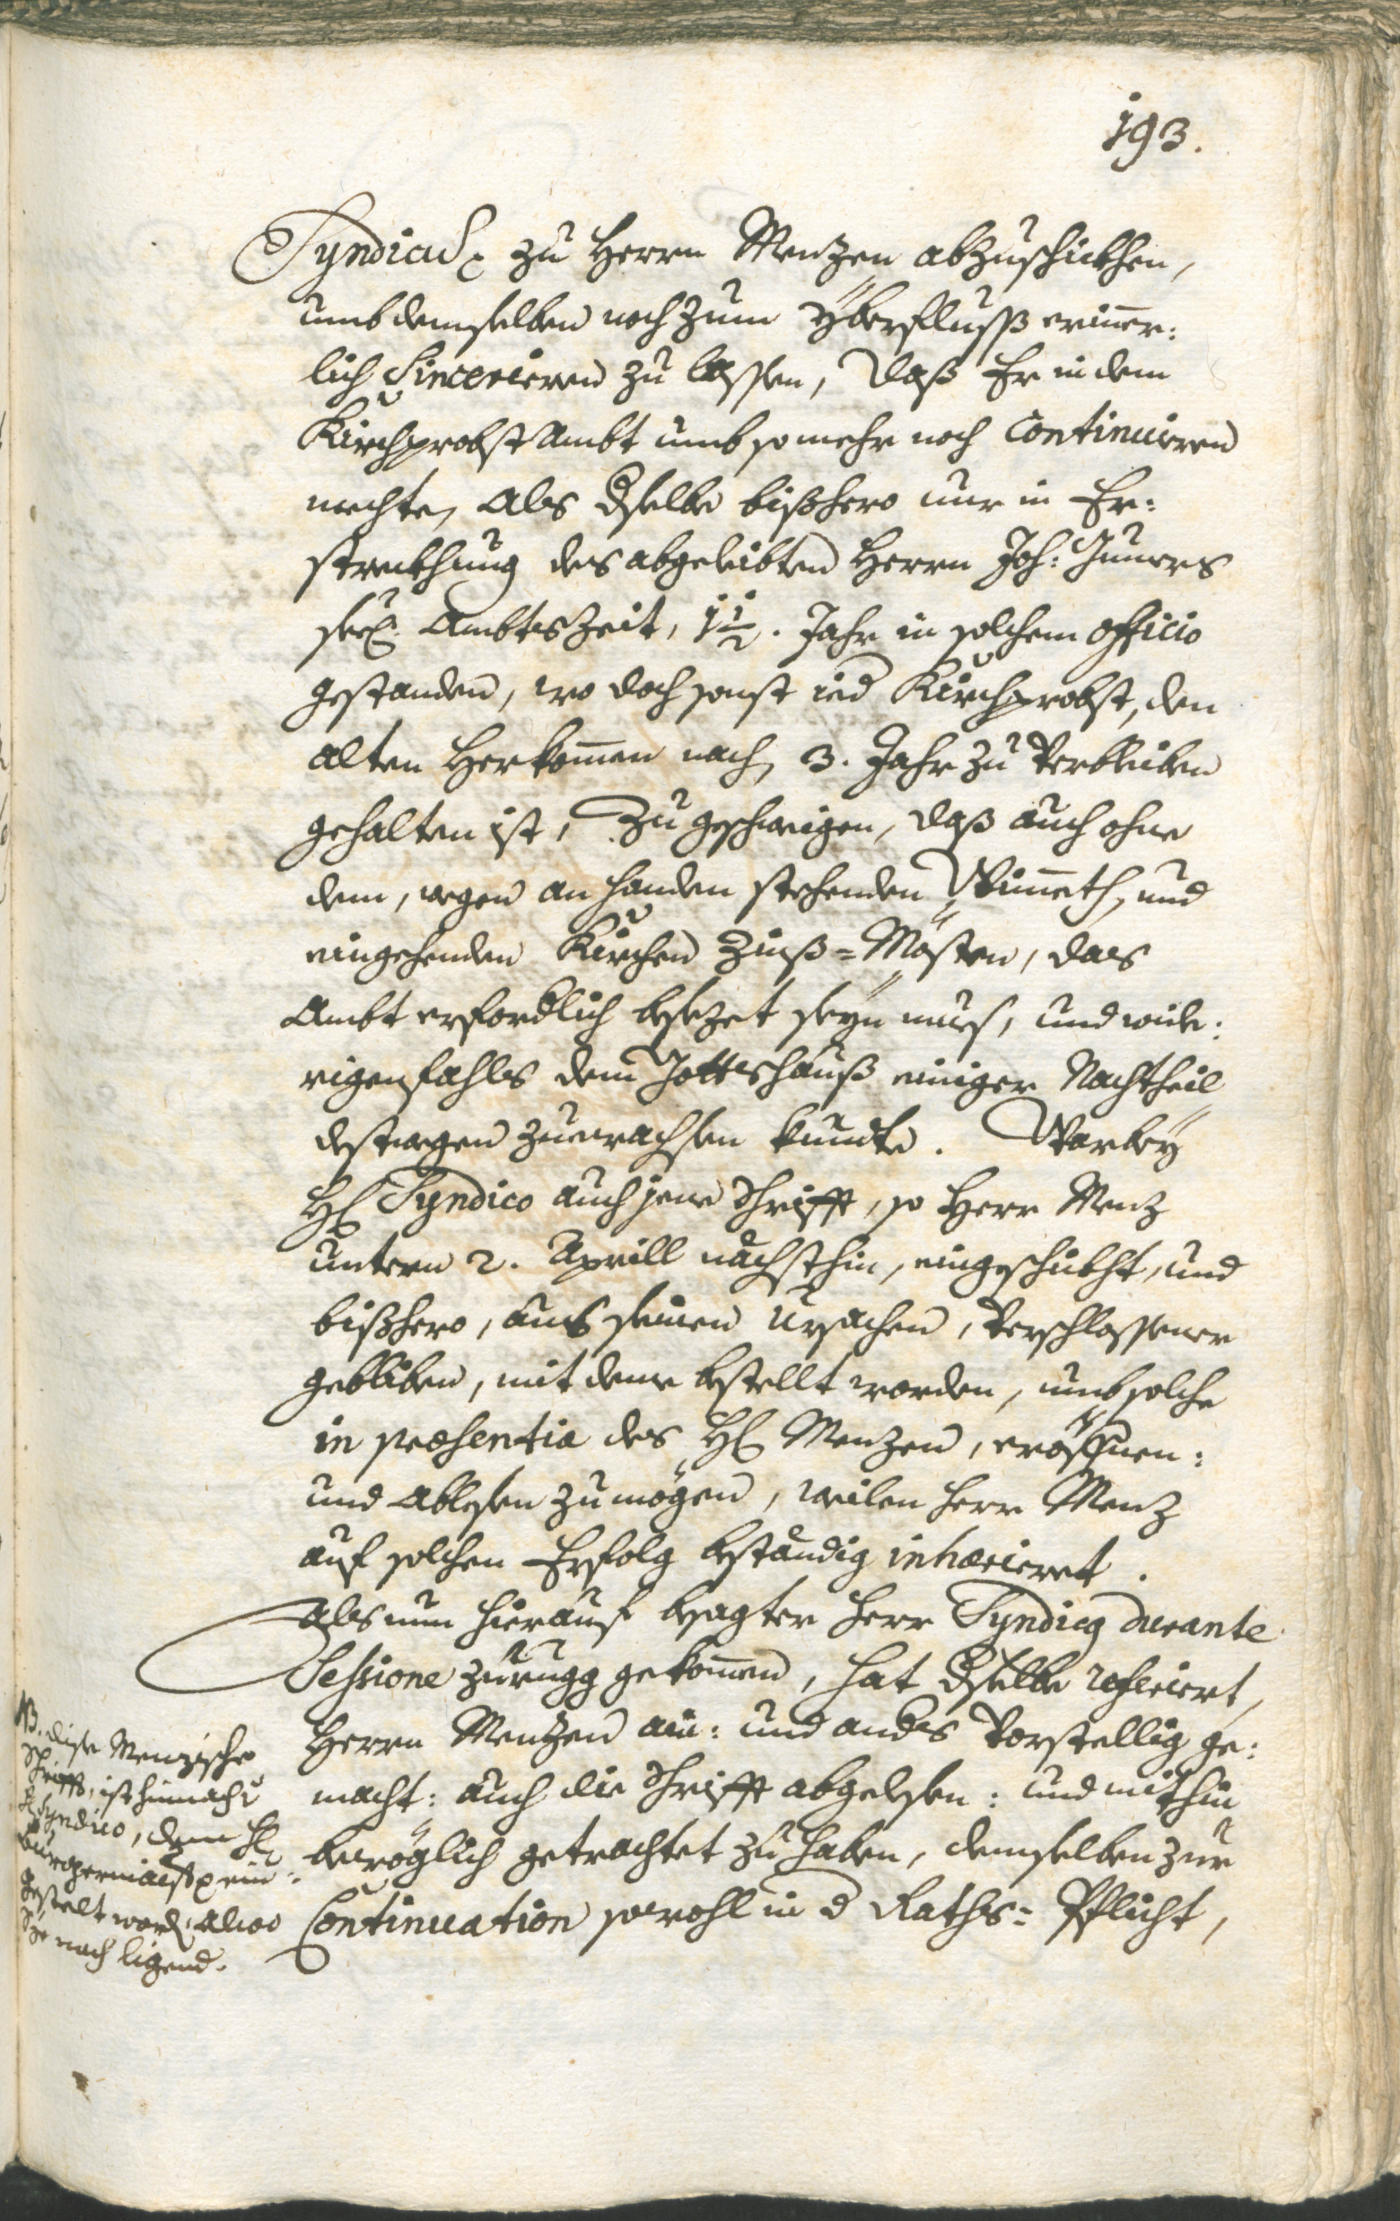 193.
Syndicus zu Herrn Menzen abzuschikhen,
umb demselben noch zum yberfluss erinner:
lich sincerieren zu lassen, dass Er in dem
Kirchprobst Ambt umb so mehr noch continuieren
mechte, als dselbe bisshero nur in Er:
strekhung des abgeleibten Herrn Joh:
seel: Ambtszeit, 1½. Jahr in solchem officio
gestanden, wo doch sonst ied Kirchprobst, den
alten Herkomen nach, 3. Jahr zu Verbleiben
gehalten ist, Zu geschweigen, dass auch ohne
dem, wegen an handen stehenden Wimeth, und
eingehenden Kirchen Zinss=Mösten, das
Ambt erfordlich besezet seyn mues, und wide:
rigenfahls dem Gottshauss einiger Nachtheil
destwegen zuewachsen kundte. Warbey
H: Syndico auch jene Schrifft, so Herr Menz
untern 2. Aprill nächsthin, eingeschikht, und
bisshero, aus seinen ursachen, Verschlossener
gebliben, mit deme bestellt worden, umb solche
in præsentia des H: Menzen, eröffnen:
und Ablesen zu mögen, weilen Herr Menz
auf solchen Erfolg beständig inhærieret.
Als nun hierauf besagter Herr Syndicq durante
Sessione zurugg gekomen, hat dselbe referiert,
Herrn Menzen ain: und anders Vorstellig ge:
macht: auch die Schrifft abgelesen: und mithin
bewöglich getrachtet zu haben, demselben zur
Continuation sowohl in d Raths= Pflicht,
NB. dise Menzische
Schrifft, ist hinnach v
H: Syndico, dem H:
Burgermaister ein:
gestelt word: alwo
Sye nach ligend.